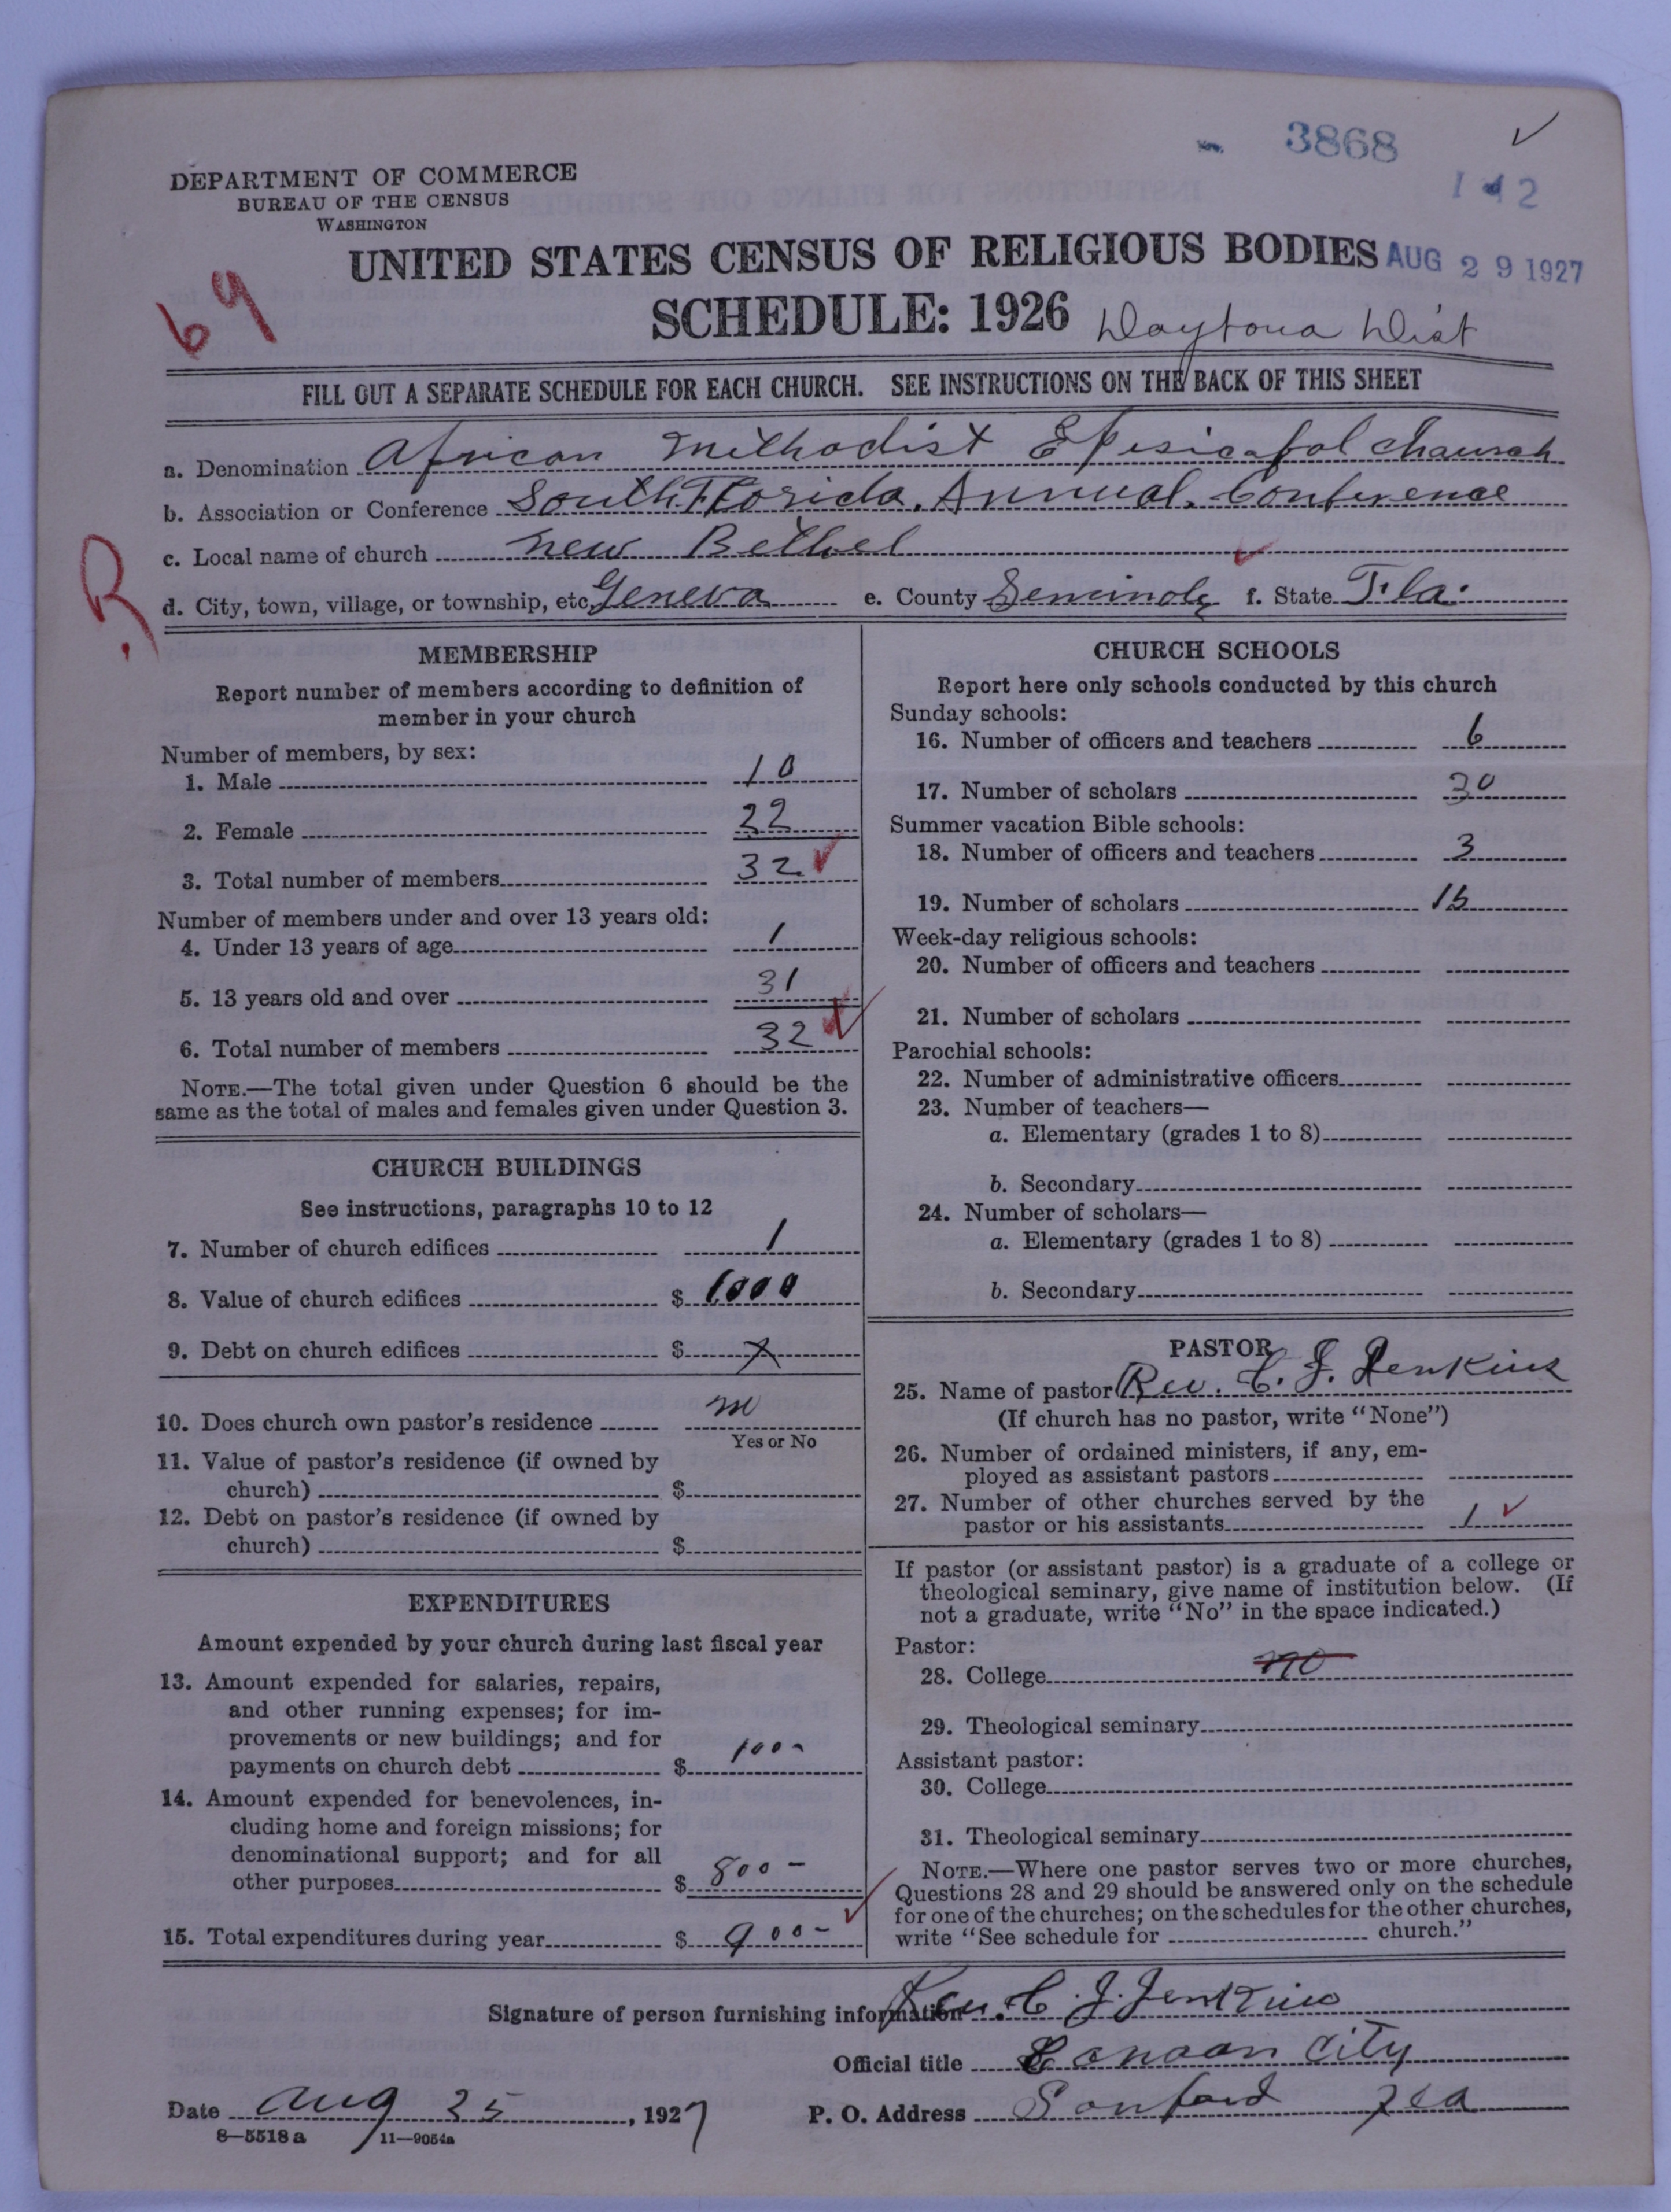 3868
✓
142
DEPARTMENT OF COMMERCE
BUREAU OF THE CENSUS
WASHINGTON
UNITED STATES CENSUS OF RELIGIOUS BODIES
AUG 29 1927
69
SCHEDULE: 1926
Daytona Dist
FILL OUT A SEPARATE SCHEDULE FOR EACH CHURCH. SEE INSTRUCTIONS ON THE BACK OF THIS SHEET
a. Denomination African Methodist Episicapol Chaurch
b. Association or Conference South Florida. Annual. Conference
c. Local name of church New Bethel
R
d. City, town, village, or township, etc Geneva e. County Seminole f. State Fla.
MEMBERSHIP
Report number of members according to definition of
member in your church
Number of members, by sex:
1. Male 10
2. Female 22
3. Total number of members 32 ✓
Number of members under and over 13 years old:
4. Under 13 years of age 1
5. 13 years old and over 31
6. Total number of members 32 ✓
NOTE.—The total given under Question 6 should be the
same as the total of males and females given under Question 3.
CHURCH BUILDINGS
See instructions, paragraphs 10 to 12
7. Number of church edifices 1
8. Value of church edifices $ 1000
9. Debt on church edifices $ X
10. Does church own pastor's residence no
Yes or No
11. Value of pastor's residence (if owned by
church) $
12. Debt on pastor's residence (if owned by
church) $
EXPENDITURES
Amount expended by your church during last fiscal year
13. Amount expended for salaries, repairs,
and other running expenses; for im-
provements or new buildings; and for
payments on church debt $ 100-
14. Amount expended for benevolences, in-
cluding home and foreign missions; for
denominational support; and for all
other purposes $ 800-
15. Total expenditures during year $ 900- ✓
CHURCH SCHOOLS
Report here only schools conducted by this church
Sunday schools:
16. Number of officers and teachers 6
17. Number of scholars 30
Summer vacation Bible schools:
18. Number of officers and teachers 3
19. Number of scholars 15
Week-day religious schools:
20. Number of officers and teachers
21. Number of scholars
Parochial schools:
22. Number of administrative officers
23. Number of teachers—
a. Elementary (grades 1 to 8)
b. Secondary
24. Number of scholars—
a. Elementary (grades 1 to 8)
b. Secondary
PASTOR
25. Name of pastor Rev. C. J. Jenkins
(If church has no pastor, write "None")
26. Number of ordained ministers, if any, em-
ployed as assistant pastors
27. Number of other churches served by the
pastor or his assistants 1 ✓
If pastor (or assistant pastor) is a graduate of a college or
theological seminary, give name of institution below. (If
not a graduate, write "No" in the space indicated.)
Pastor:
28. College no
29. Theological seminary
Assistant pastor:
30. College
31. Theological seminary
NOTE.—Where one pastor serves two or more churches,
Questions 28 and 29 should be answered only on the schedule
for one of the churches; on the schedules for the other churches,
write "See schedule for church."
Signature of person furnishing information Rev. C. J. Jenkins
Official title Canaan City
Date Aug 25, 1927 P. O. Address Sanford Fla
8—5518a 11—9054a